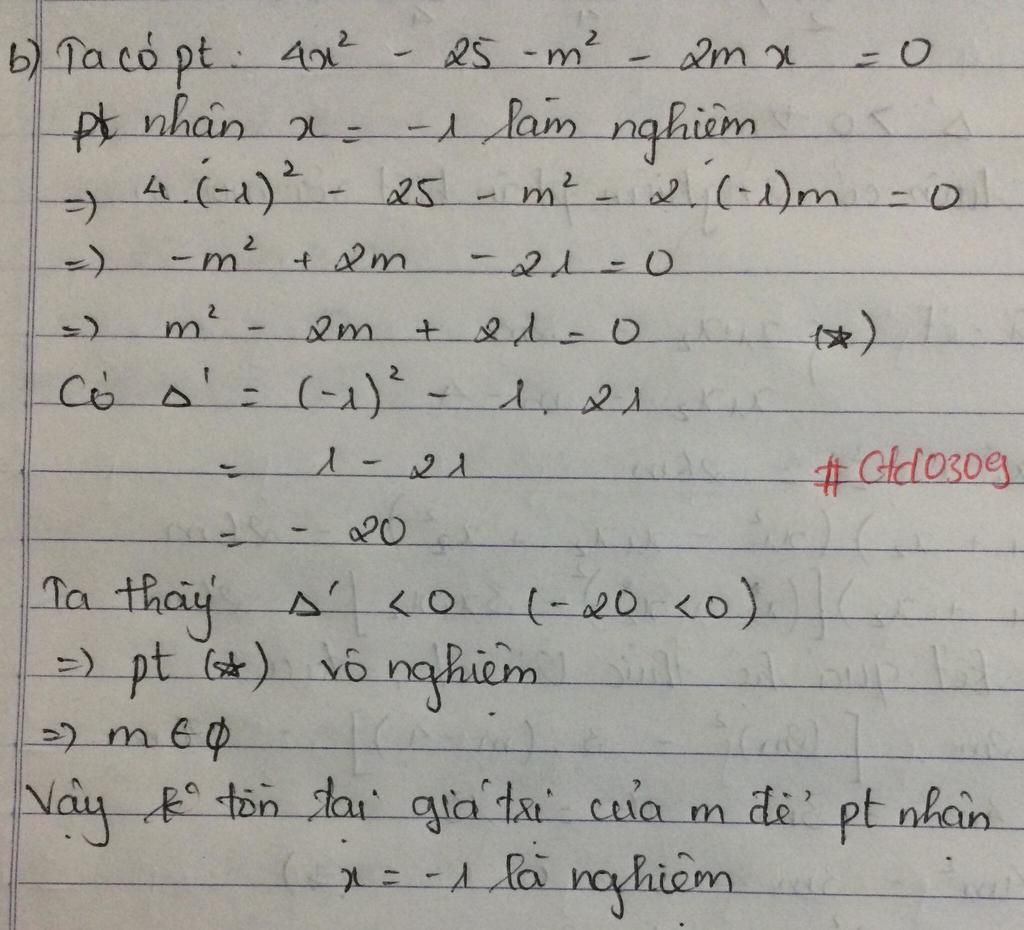 b) Ta có pt: 4x² - 25 - m² - 2mx = 0
pt nhận x = -1 làm nghiệm
=> 4.(-1)² - 25 - m² - 2.(-1)m = 0
=> -m² + 2m - 21 = 0
=> m² - 2m + 21 = 0 (*)
Có Δ' = (-1)² - 1.21
= 1 - 21
#Ctd0309
= - 20
Ta thấy Δ' < 0 (-20 < 0)
=> pt (*) vô nghiệm
=> m ∈ ∅
Vậy k° tồn tại giá trị của m để pt nhận
x = -1 là nghiệm